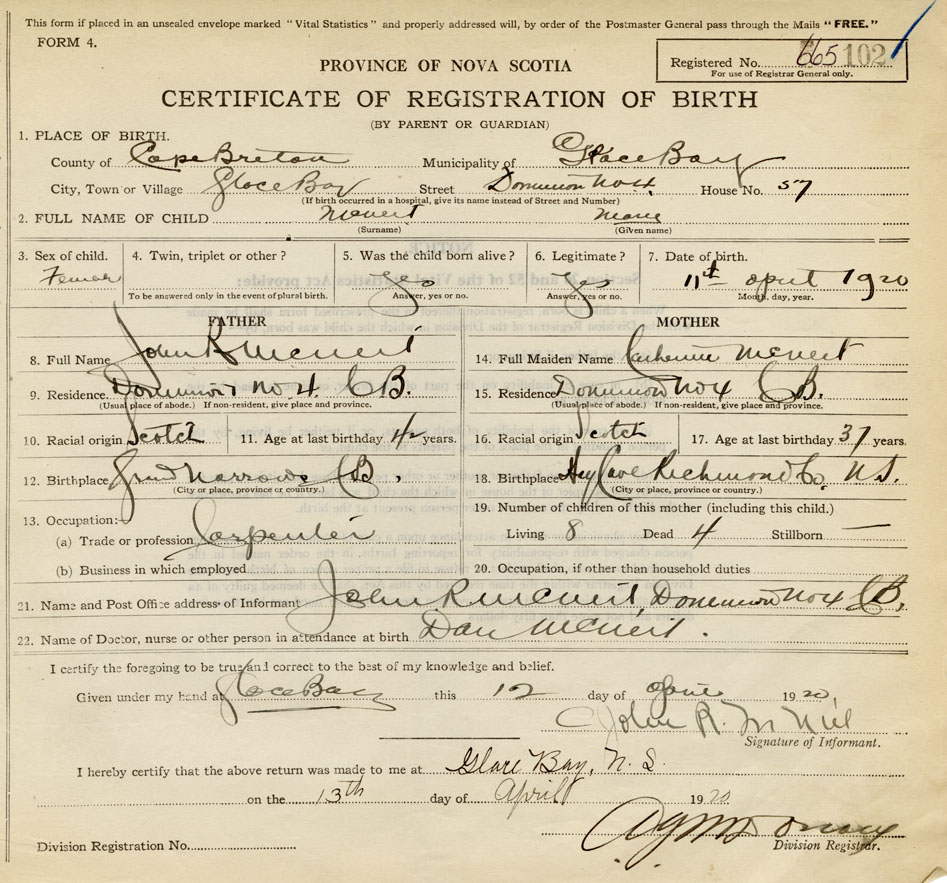 This form if placed in an unsealed envelope marked "Vital Statistics" and properly addressed will, by order of the Postmaster General pass through the Mails "FREE."
FORM 4.
Registered No. 665 102
For use of Registrar General only.
PROVINCE OF NOVA SCOTIA
CERTIFICATE OF REGISTRATION OF BIRTH
(BY PARENT OR GUARDIAN)
1. PLACE OF BIRTH.
County of Cape Breton Municipality of Glace Bay
City, Town or Village Glace Bay Street Dominion No 4 House No. 57
(If birth occurred in a hospital, give its name instead of Street and Number)
2. FULL NAME OF CHILD
(Surname) (Given name)
3. Sex of child. 4. Twin, triplet or other? 5. Was the child born alive? 6. Legitimate? 7. Date of birth.
Yes Yes 11th April 1920
To be answered only in the event of plural birth. Answer, yes or no. Answer, yes or no. Month, day, year.
FATHER MOTHER
8. Full Name John R 14. Full Maiden Name Catherine
9. Residence. Dominion No. 4. C B. 15. Residence Dominion No 4 C B.
(Usual place of abode.) If non-resident, give place and province. (Usual place of abode.) If non-resident, give place and province.
10. Racial origin Scotch 11. Age at last birthday 42 years. 16. Racial origin Scotch 17. Age at last birthday 37 years.
12. Birthplace Grand Narrows C B. 18. Birthplace Richmond Co. N S.
(City or place, province or country.) (City or place, province or country.)
13. Occupation: 19. Number of children of this mother (including this child.)
(a) Trade or profession Carpenter Living 8 Dead 4 Stillborn —
(b) Business in which employed 20. Occupation, if other than household duties
21. Name and Post Office address of Informant John R Dominion No 4 C B.
22. Name of Doctor, nurse or other person in attendance at birth Dan
I certify the foregoing to be true and correct to the best of my knowledge and belief.
Given under my hand at Glace Bay this 12 day of April 1920.
John R. McNeil
Signature of Informant.
I hereby certify that the above return was made to me at Glace Bay, N. S.
on the 13th day of April 1920
Division Registration No. Division Registrar.